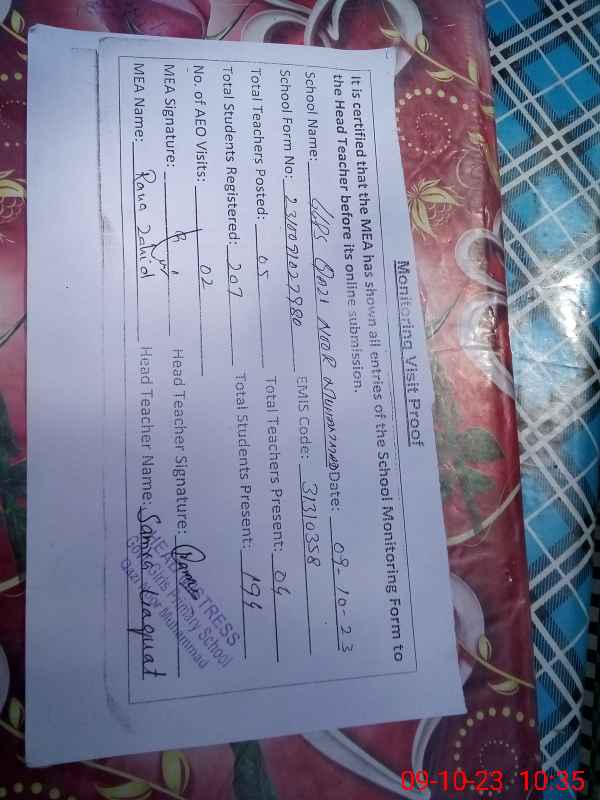 Monitoring Visit Proof
It is certified that the MEA has shown all entries of the School Monitoring Form to
the Head Teacher before its online submission.
School Name: GGPS QAZI NOOR MUHAMMAD Date: 09-10-23
School Form No: 2310091027980 EMIS Code: 31310358
Total Teachers Posted: 05 Total Teachers Present: 04
Total Students Registered: 207 Total Students Present: 194
No. of AEO Visits: 02
MEA Signature: Head Teacher Signature:
MEA Name: Rana Zahid Head Teacher Name: Samra Liaquat
HEADMISTRESS
Govt. Girls Primary School
Qazi Noor Muhammad
09-10-23 10:35